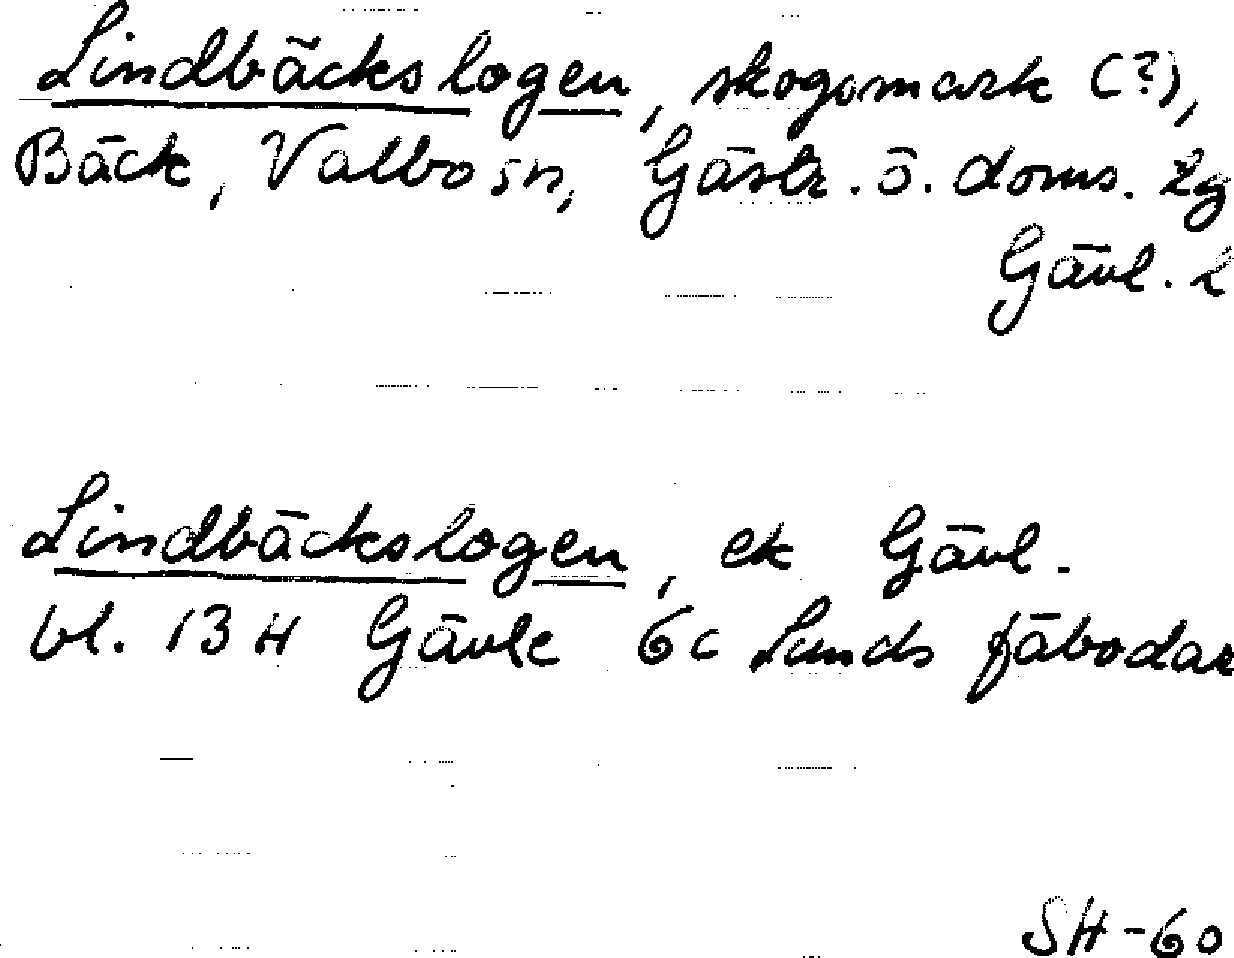 Lindbäckslogen, skogsmark (?),
Bäck, Valbo sn, Gästr. ö. doms. lg
Gävl. l
Lindbäckslogen, ek Gävl.
bl. 13 H Gävle 6c Lunds fäbodar
SH-60